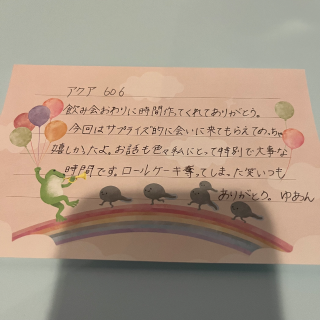 アクア 606
飲み会おわりに時間作ってくれてありがとう。
今回はサプライズ的に会いに来てもらえてめっちゃ
嬉しかったよ。お話も色々私にとって特別で大事な
時間です。ロールケーキ奪ってしまった笑いつも
ありがとう。ゆあん